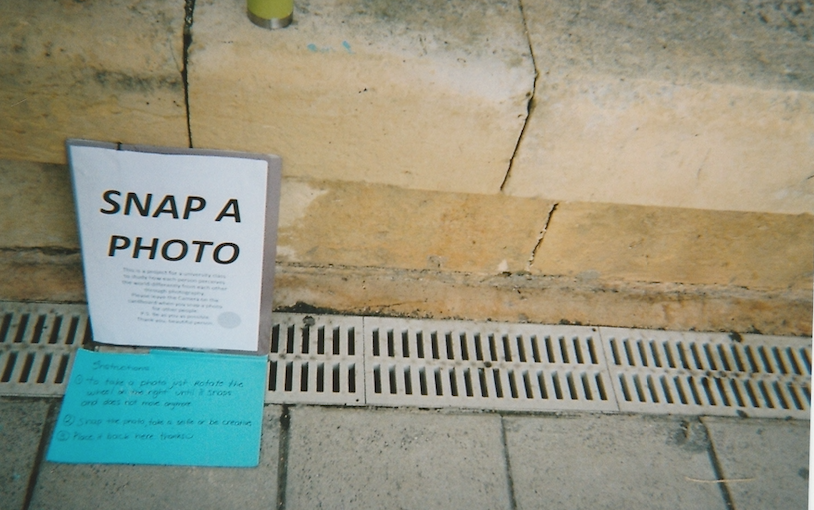 SNAP A
PHOTO
This is a project for a university class
to study how each person perceives
the world differently from each other
through photography.
Please leave the camera on the
cardboard when you snap a photo
for other people.
P.S. Be as
Thank you, beautiful person
Instructions:
① To take a photo just rotate the
wheel on the right until it snaps
and does not move anymore
② Snap the photo, take a selfie or be creative
③ Place it back here thanks